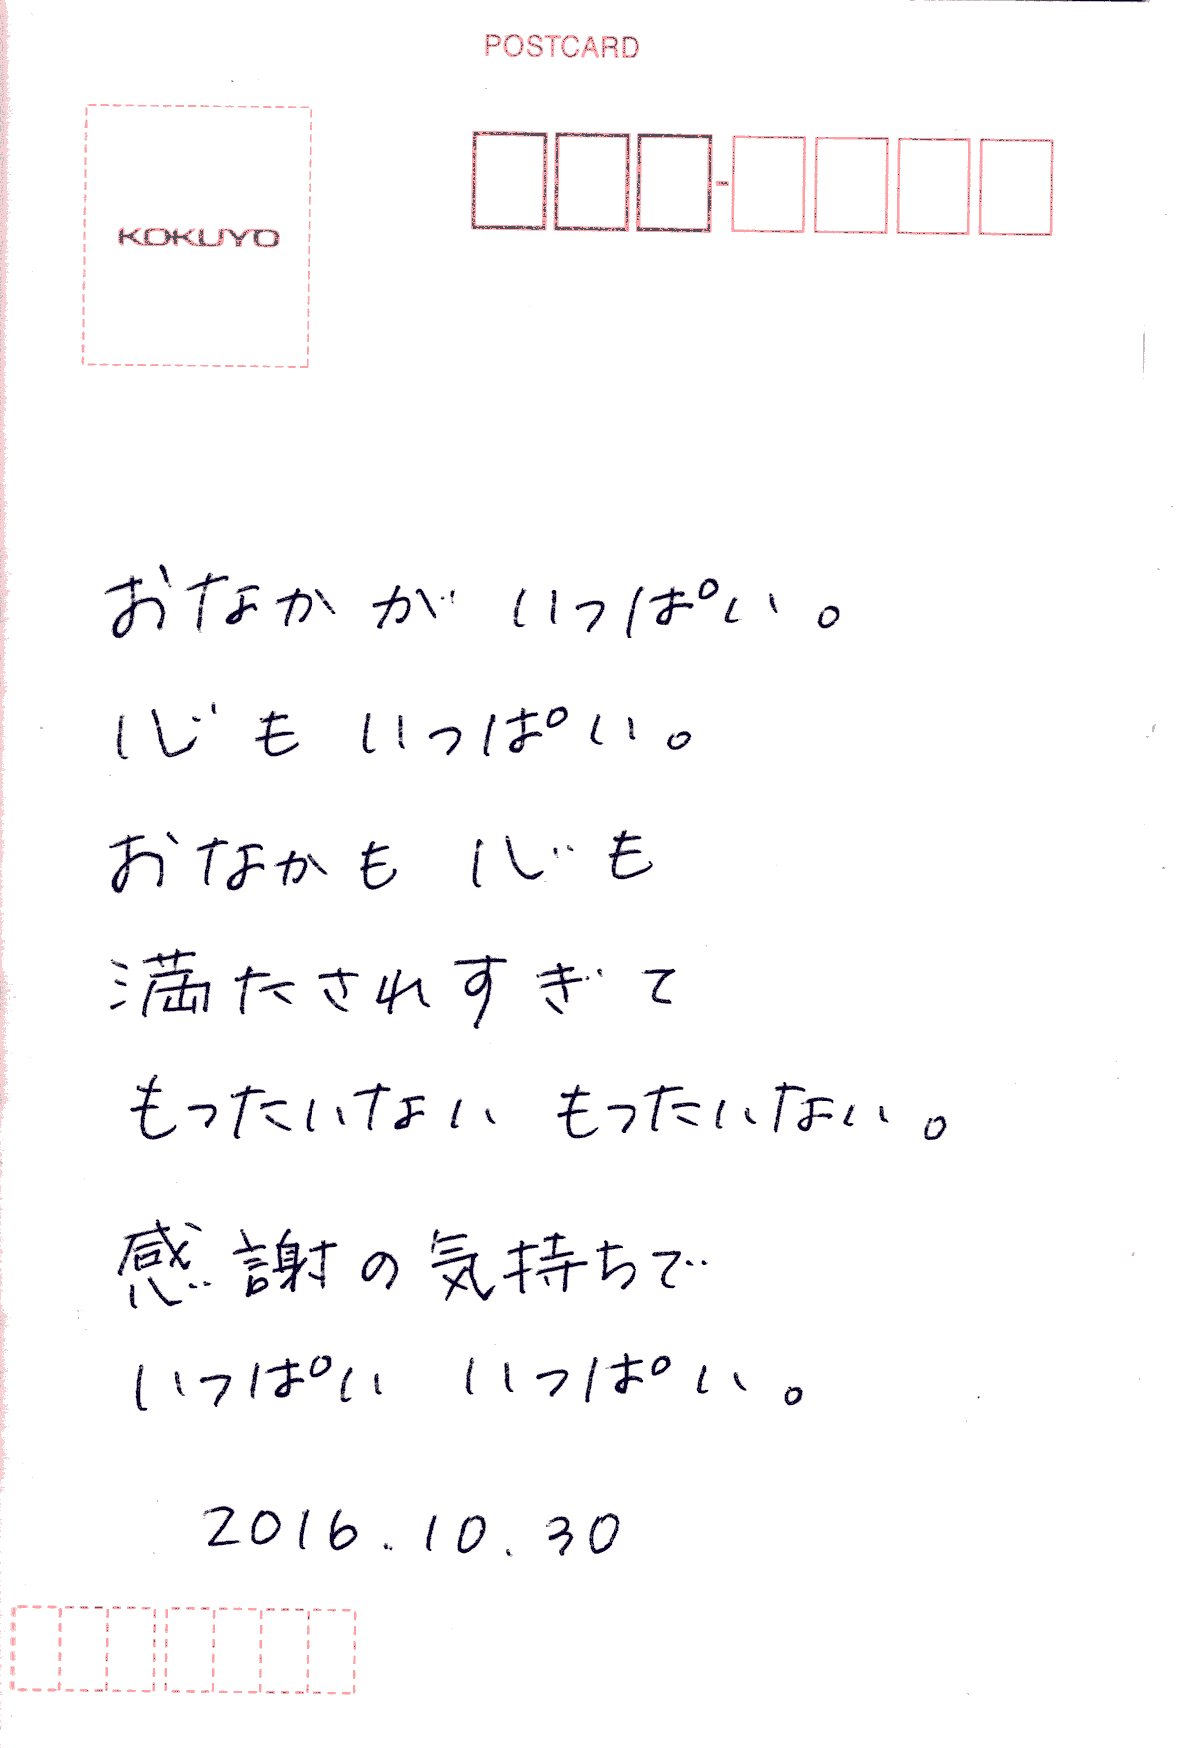 POSTCARD
KOKUYO
おなかが いっぱい。
心も いっぱい。
おなかも 心も
満たされすぎて
もったいない もったいない。
感謝の気持ちで
いっぱい いっぱい。
2016.10.30